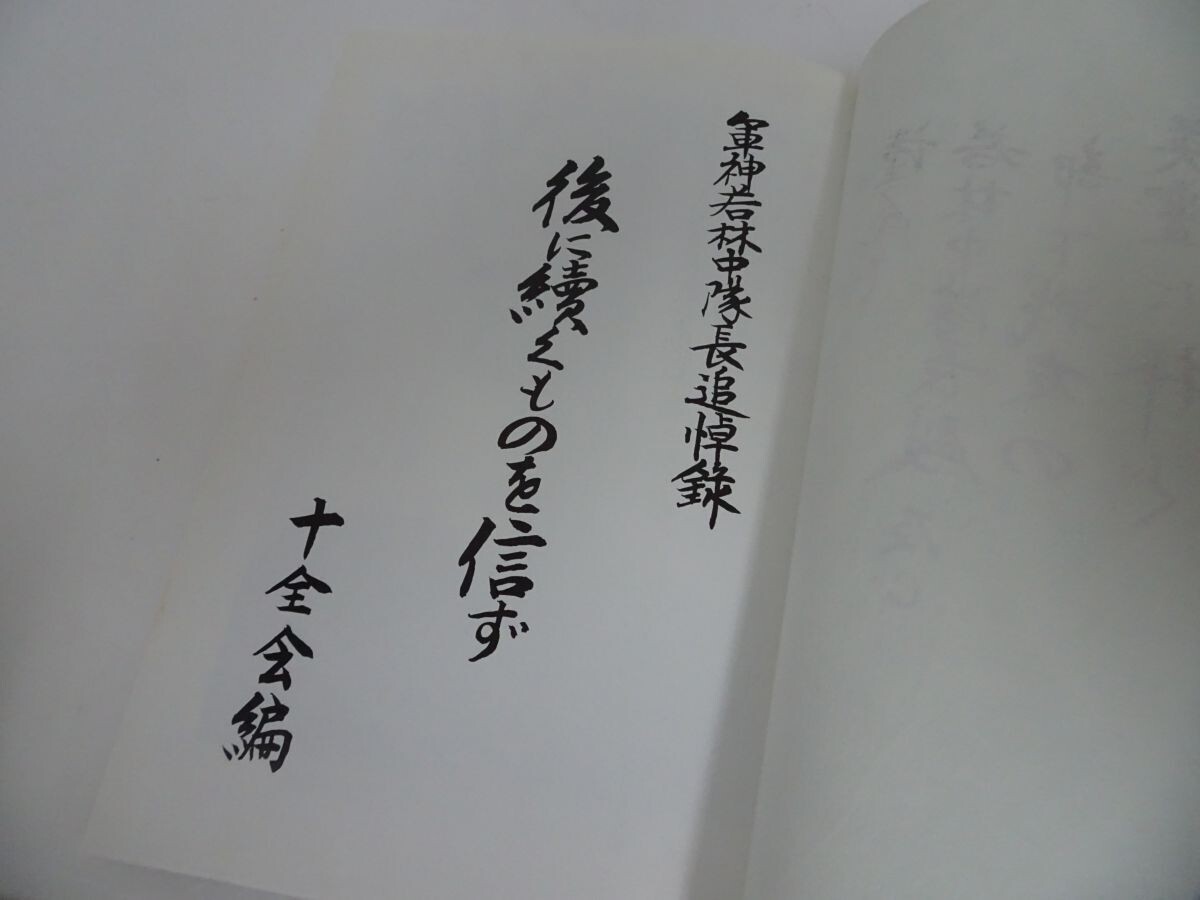 軍神若林中隊長追悼錄
後に續くものを信ず
十全会編